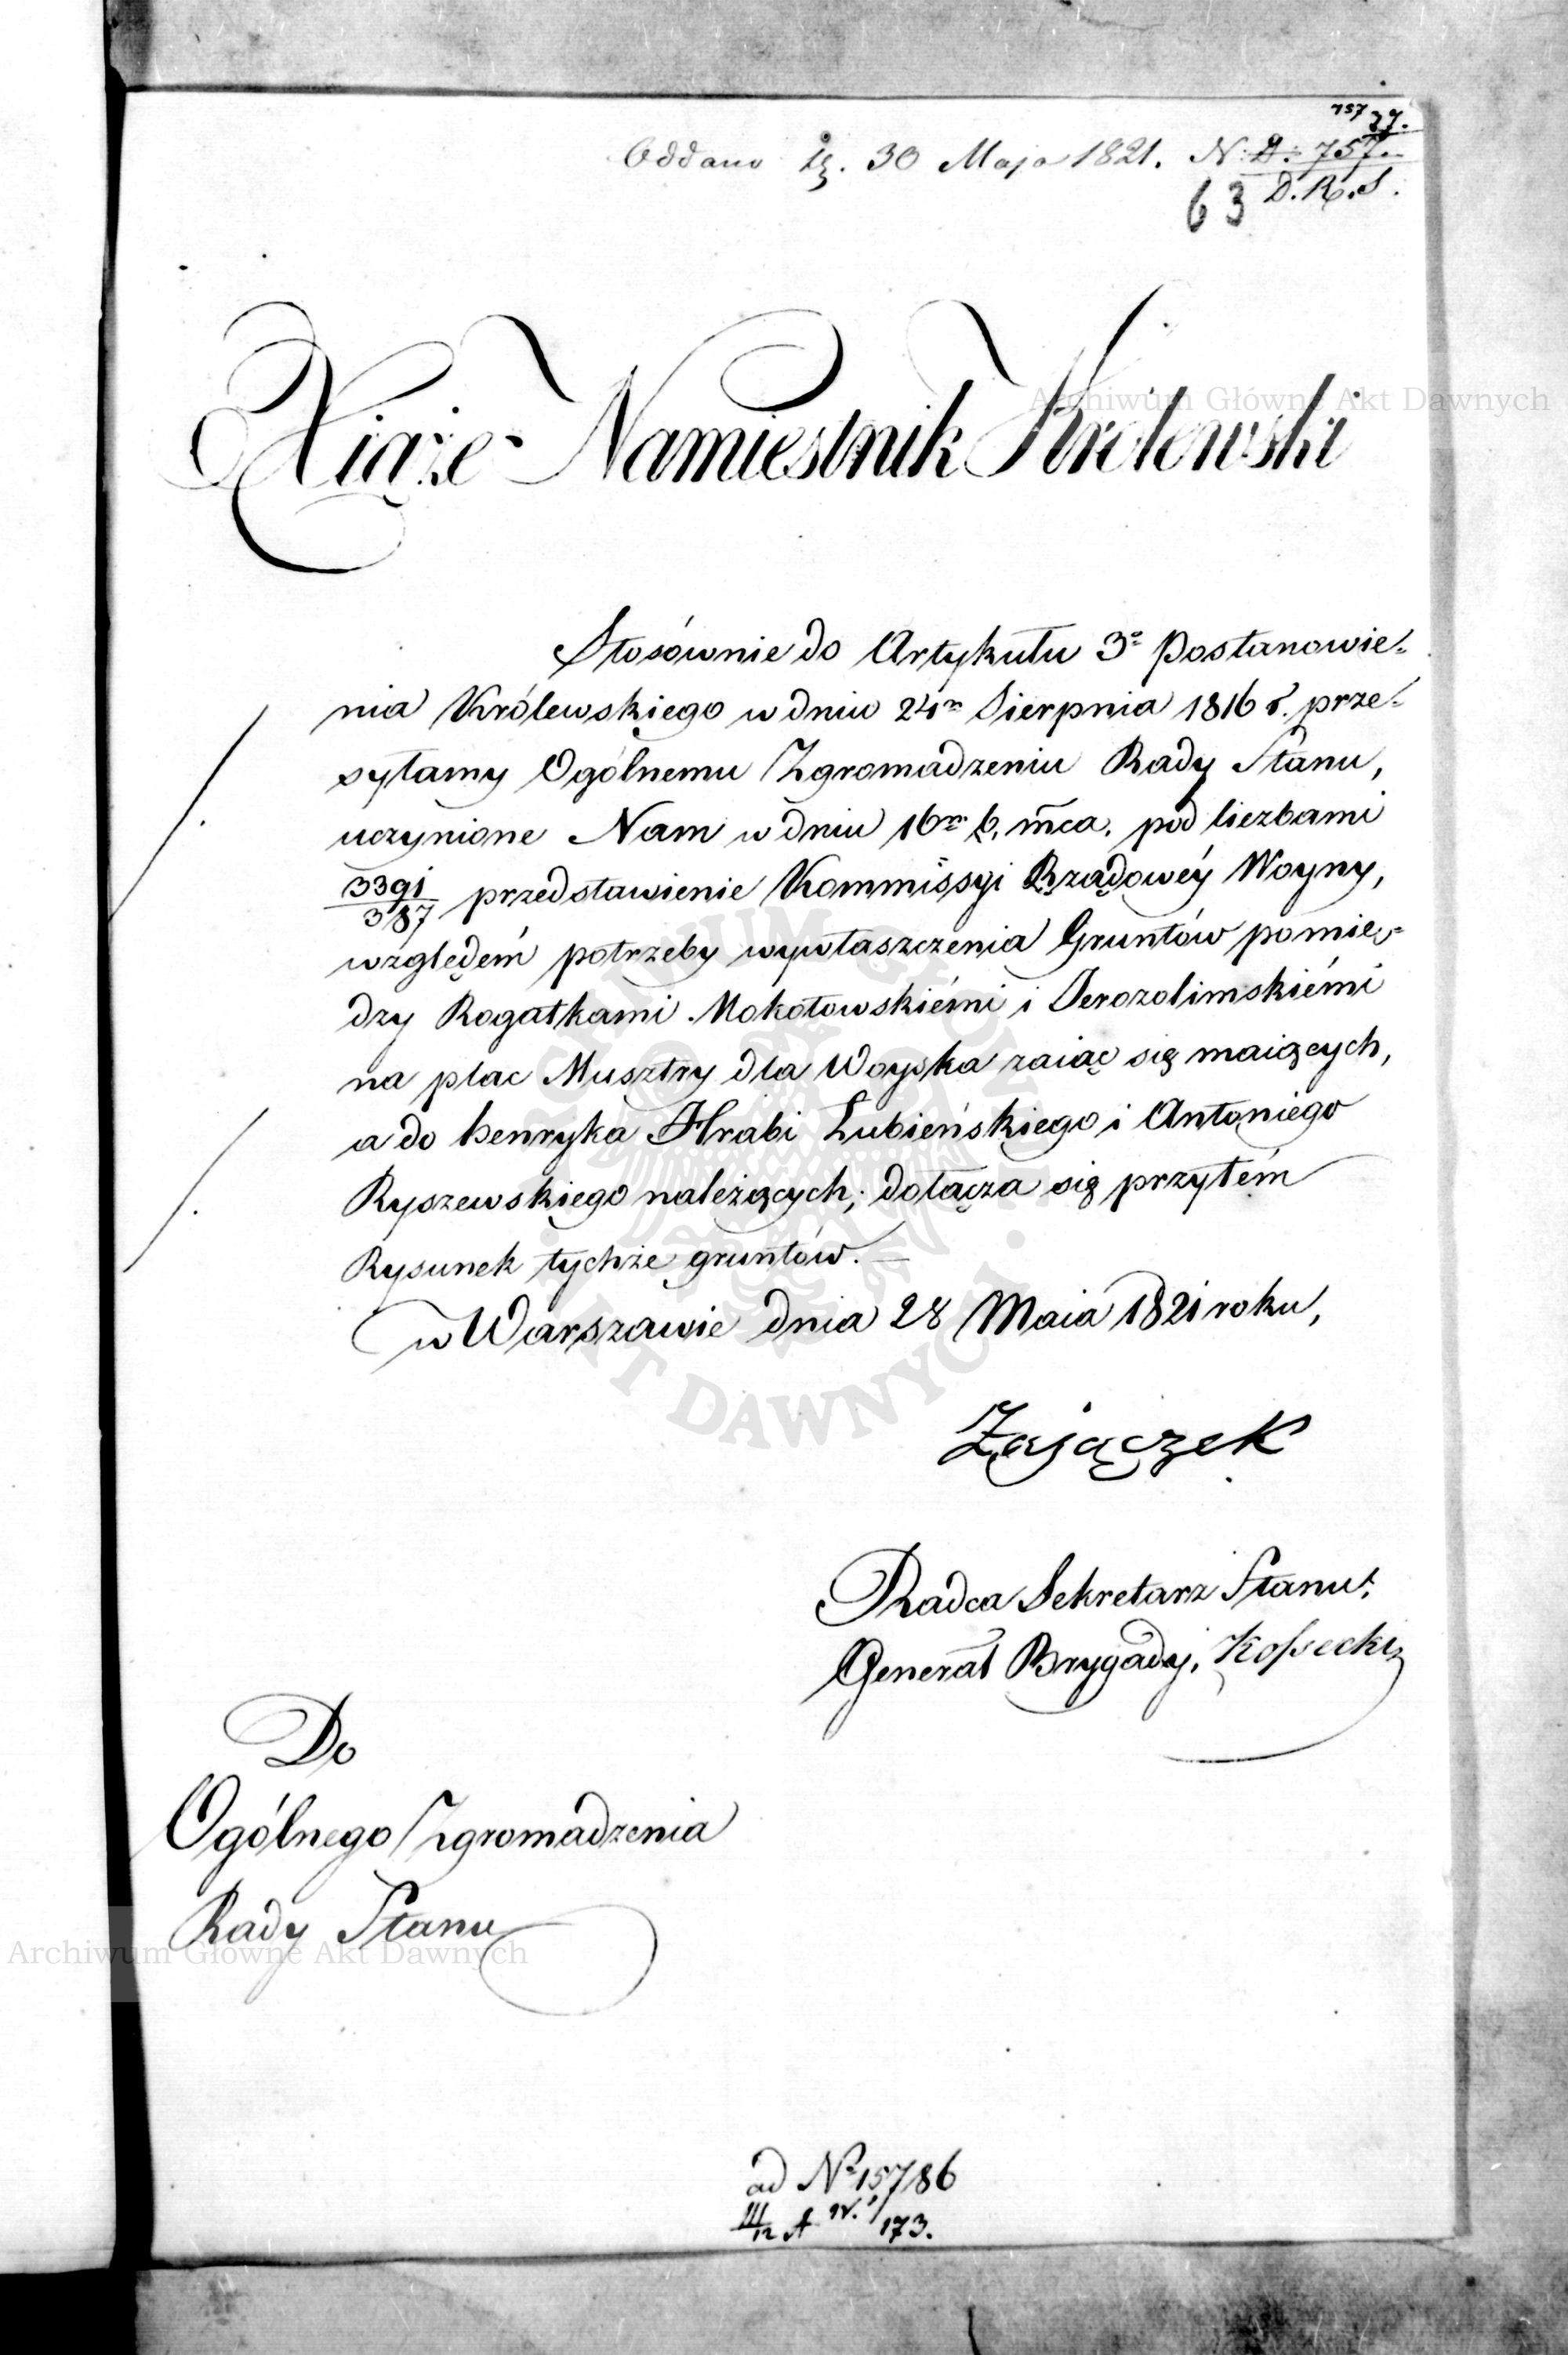 757 37.
Oddano d. 30 Maja 1821. N: D: 757.
63 D.R.S.
Xiąże Namiestnik Królewski
Stosównie do Artykułu 3º Postanowie-
nia Królewskiego w dniu 24m Sierpnia 1816 r. prze-
syłamy Ogólnemu Zgromadzeniu Rady Stanu,
uczynione Nam w dniu 16m b. mca. pod liczbami
3391/387 przedstawienie Kommissyi Rządowéy Woyny,
względem potrzeby wywłaszczenia Gruntów pomię-
dzy Rogatkami Mokotowskiémi i Jerozolimskiémi
na plac Musztry dla Woyska zaiąć się maiących,
a do Henryka Hrabi Łubieńskiego i Antoniego
Ryszewskiego należących; dołącza się przytém
Rysunek tychże gruntów.
w Warszawie dnia 28 Maia 1821 roku,
Zajączek
Radca Sekretarz Stanu,
Generał Brygady, Kossecki
Do
Ogólnego Zgromadzenia
Rady Stanu
ad Nº 15786
III/12 A 173.
Archiwum Główne Akt Dawnych
Archiwum Główne Akt Dawnych
ARCHIWUM GŁÓWNE AKT DAWNYCH